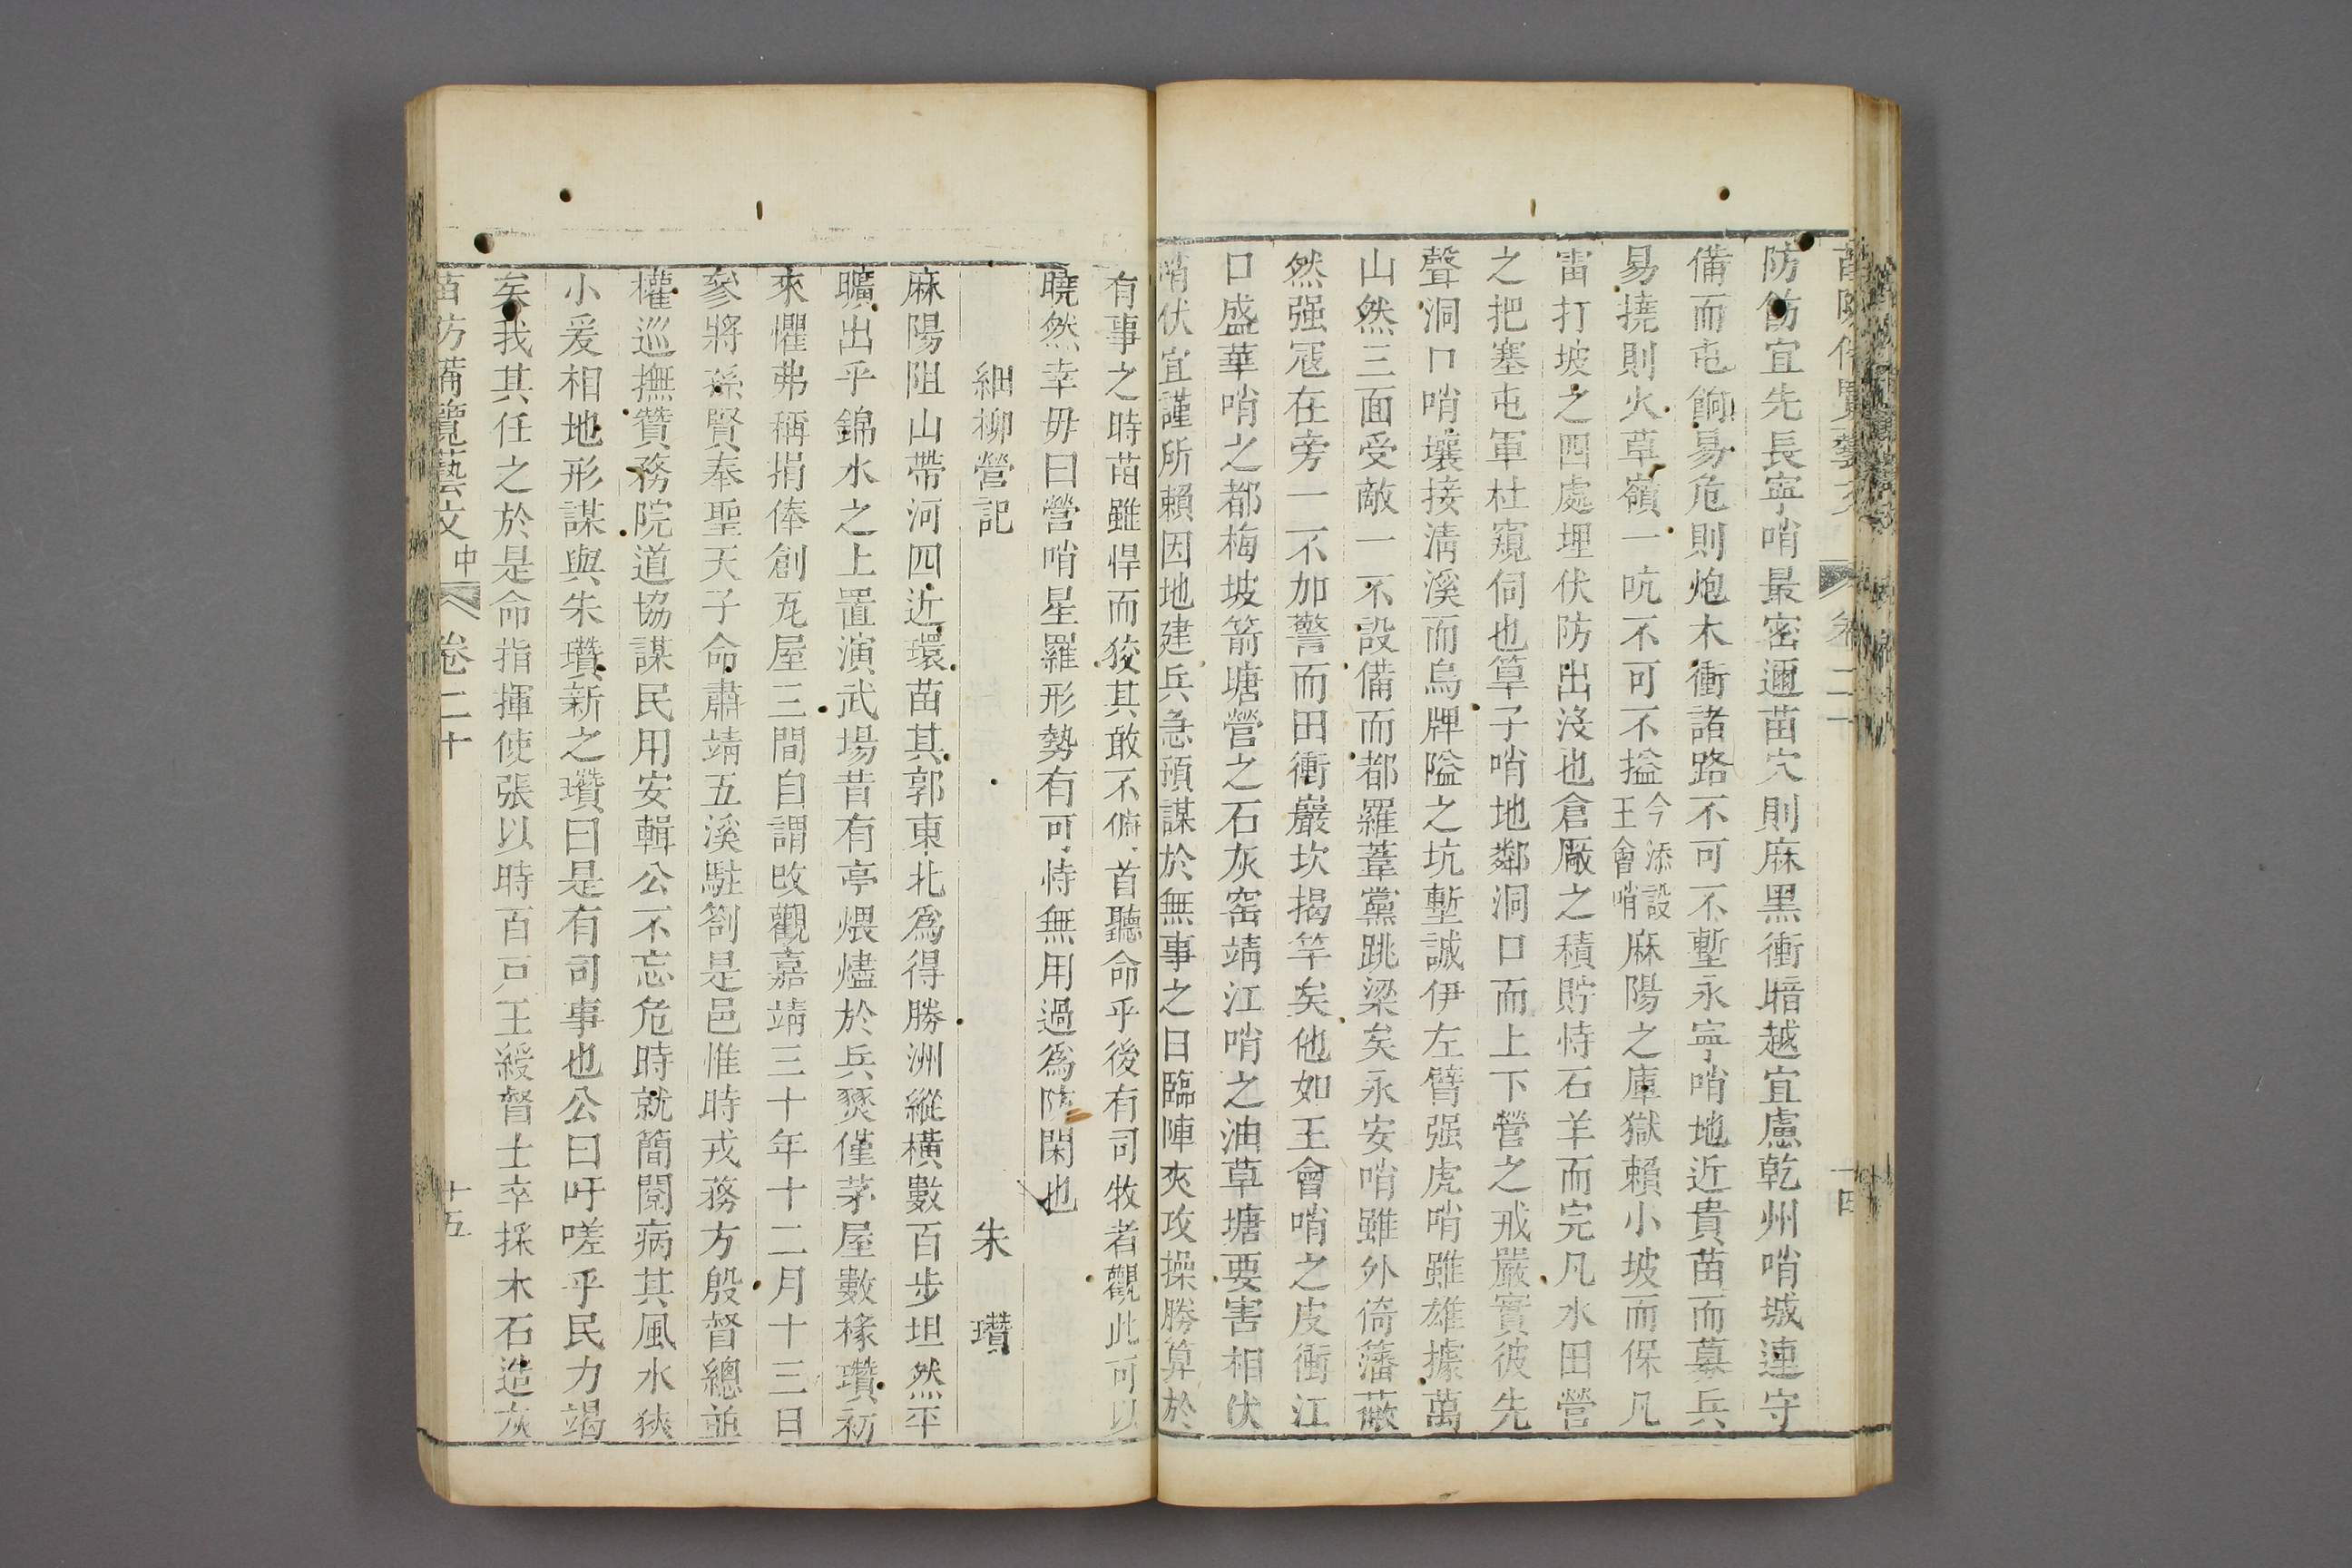 苗防備覽藝文 卷二十 十四
防飭宜先長寧哨最密邇苗穴則麻黑衝暗越宜慮乾州哨城連守
備而屯餉易危則炮木衝諸路不可不塹永寧哨地近貴苗而募兵
易撓則火草嶺一吭不可不搤今添設王會哨麻陽之庫獄賴小坡而保凡
雷打坡之四處埋伏防出沒也倉廠之積貯恃石羊而完凡水田營
之把塞屯軍杜窺伺也箄子哨地鄰洞口而上下營之戒嚴實彼先
聲洞口哨壤接清溪而烏牌隘之坑塹誠伊左臂强虎哨雖雄據萬
山然三面受敵一不設備而都羅葦黨跳梁矣永安哨雖外倚藩蔽
然强冦在旁一不加警而田衝巖坎揭竿矣他如王會哨之皮衝江
口盛華哨之都梅坡箭塘營之石灰窑靖江哨之油草塘要害相伏
哨伏宜謹所賴因地建兵急預謀於無事之日臨陣夾攻操勝算於
有事之時苗雖悍而狡其敢不俯首聽命乎後有司牧者觀此可以
曉然幸毋曰營哨星羅形勢有可恃無用過爲防閑也
細柳營記 朱瓚
麻陽阻山帶河四近環苗其郭東北爲得勝洲縱橫數百步坦然平
曠出乎錦水之上置演武場昔有亭煨燼於兵燹僅茅屋數椽瓚初
來懼弗稱捐俸創瓦屋三間自謂改觀嘉靖三十年十二月十三日
參將孫賢奉聖天子命肅靖五溪駐劄是邑惟時戎務方殷督總並
權巡撫贊務院道協謀民用安輯公不忘危時就簡閱病其風水狹
小爰相地形謀與朱瓚新之瓚曰是有司事也公曰吁嗟乎民力竭
矣我其任之於是命指揮使張以時百戸王綬督士卒採木石造灰
苗防備覽藝文中 卷二十 十五